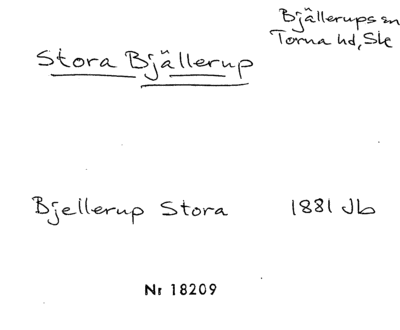 Bjällerups sn
Torna hd, Ske
Stora Bjällerup
Bjellerup Stora 1881 Jb
Nr 18209